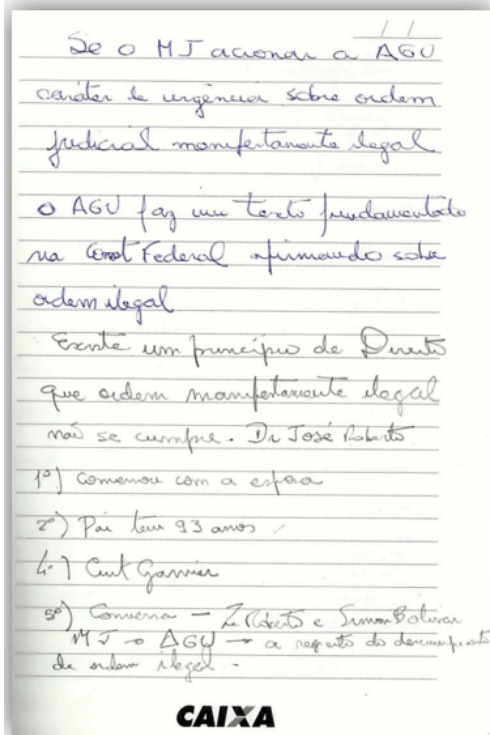 / /
Se o MJ acionar a AGU
caráter de urgência sobre ordem
judicial manifestamente ilegal
O AGU faz um texto fundamentado
na Const Federal afirmando sobre
ordem ilegal
Existe um princípio de Direito
que ordem manifestamente ilegal
não se cumpre. Dr José Roberto
1º) Comemou com a
2º) Pai tem 93 anos
4º)
5º) Conversa - Zé Roberto e Simon Bolivar
MJ → AGU → a respeito do
de ordem ilegal -
CAIXA